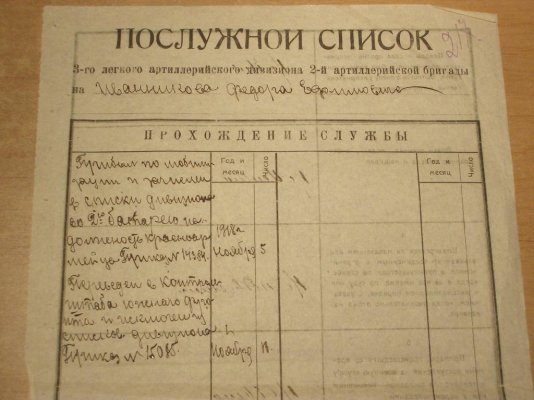 ПОСЛУЖНОЙ СПИСОК
3-го легкого артиллерийского дивизиона 2-й артиллерийской бригады
на Иванникова Федора Ефимовича
ПРОХОЖДЕНИЕ СЛУЖБЫ
Год и месяц Число Год и месяц Число
Прибыл по мобили
зации и зачислен
в списки дивизиона
во 2ую батарею на
должность красноар 1918г
мейца Приказ № Ноября 5
Переведен в
штаба южного фро
нта и исключен из
списков дивизиона
Приказ № Ноября